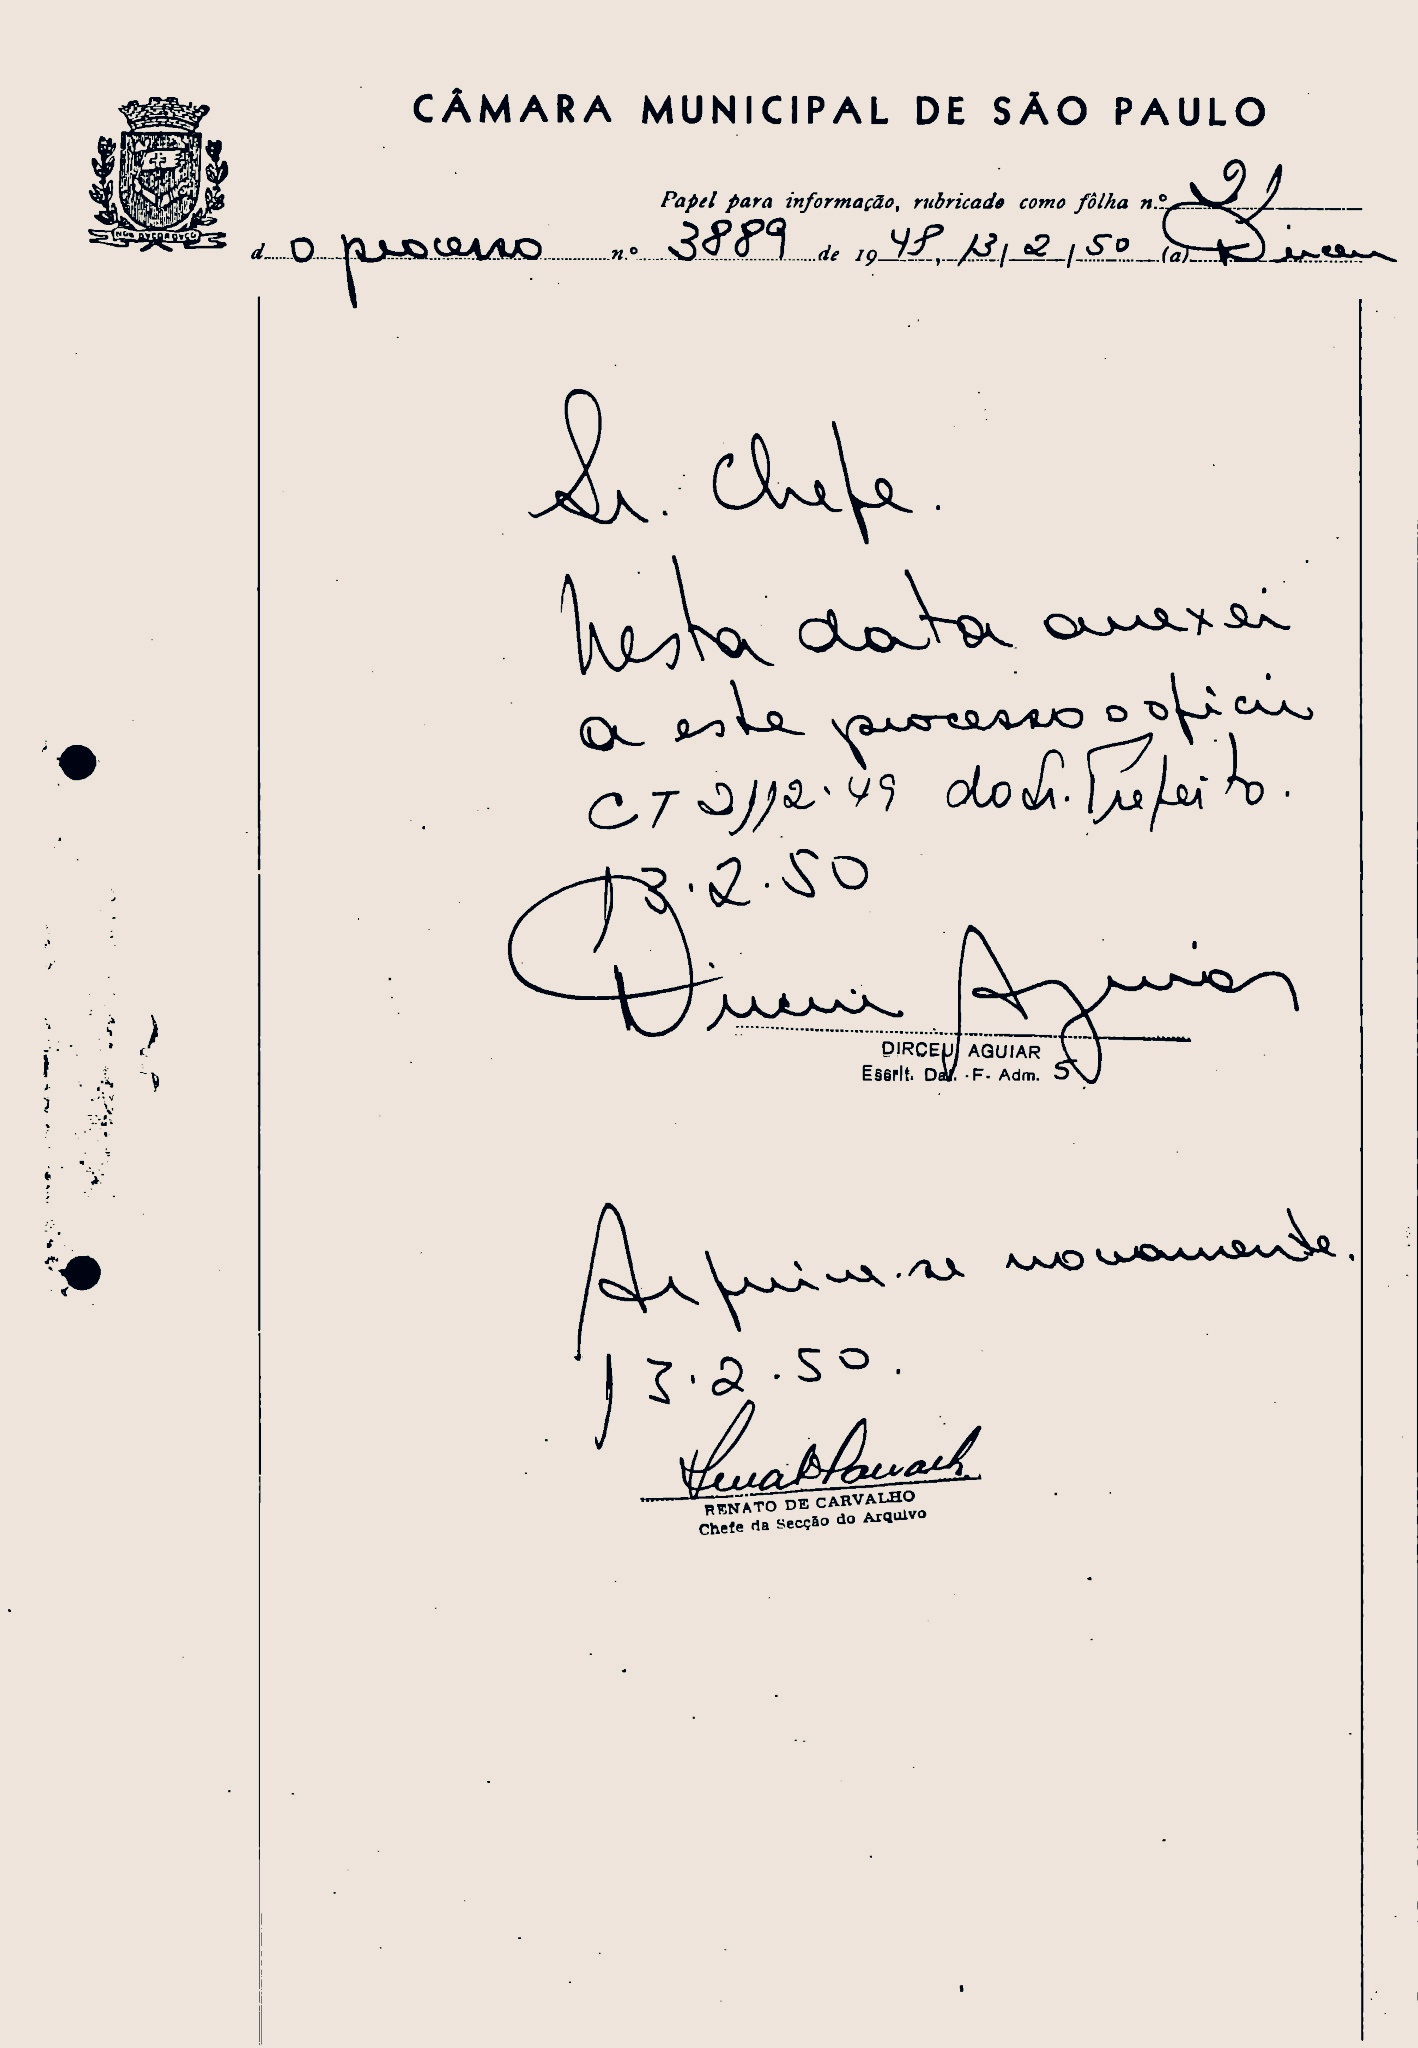 CÂMARA MUNICIPAL DE SÃO PAULO
Papel para informação, rubricado como fôlha n.º 21
do processo n.º 3889 de 1948, 13/2/50 (a) Dirceu
Sr. Chefe.
Nesta data anexei
a este processo o oficio
CT 2112.49 do Sr. Prefeito.
13.2.50
Dirceu Aguiar
DIRCEU AGUIAR
Escrit. Dat. -F- Adm. 5
Arquive-se novamente.
13.2.50.
Renato de Carvalho
RENATO DE CARVALHO
Chefe da Secção do Arquivo